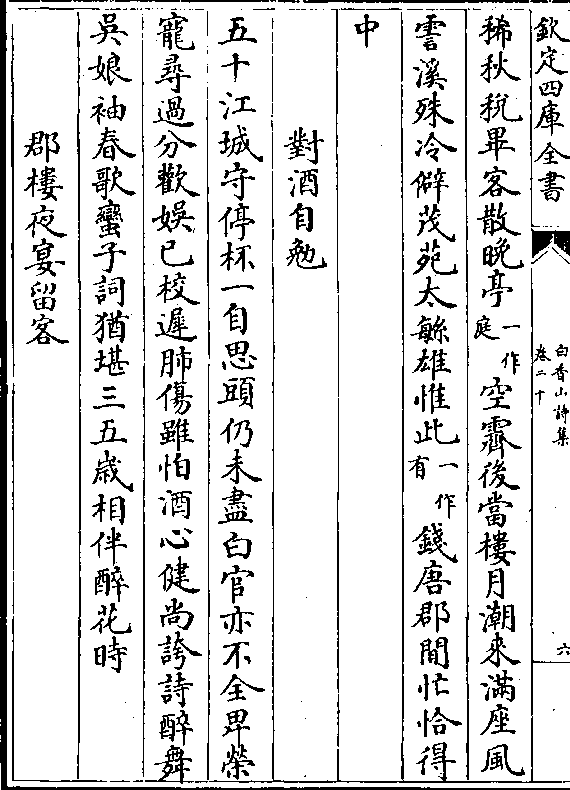 欽定四庫全書
白香山詩集
卷二十
六
稀秋稅畢客散晚亭一作庭空霽後當樓月潮來滿座風
霅溪殊冷僻茂苑太繁雄惟此一作有錢唐郡閒忙恰得
中
對酒自勉
五十江城守停杯一自思頭仍未盡白官亦不全卑榮
寵尋過分歡娛已校遲肺傷雖怕酒心健尚誇詩醉舞
吳娘袖春歌蠻子詞猶堪三五歲相伴醉花時
郡樓夜宴留客